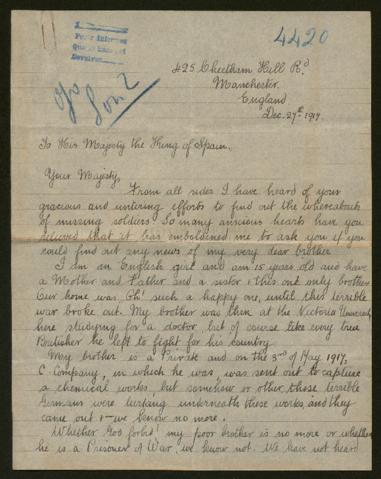 4420
425 Cheetham Hill Rd
Manchester.
England
Dec. 27th 1917.
To His Majesty the King of Spain,
Your Majesty,
From all sides I have heard of your
gracious and untiring efforts to find out the whereabouts
of missing soldiers. So many anxious hearts have you
relieved that it has emboldened me to ask you if you
could find out any news of my very dear brother.
I am an English girl and am 15 years old and have
a Mother and Father and a sister & this out only brother.
Our home was, Oh! such a happy one, until this terrible
war broke out. My brother was then at the Victoria University
here studying for a doctor, but of course like every true
Britisher he left to fight for his country.
My brother is a Private and on the 3rd of May 1917,
C. Company, in which he was, was sent out to capture
a chemical works, but somehow or other, those terrible
Germans were lurking underneath these works, and they
came out & — we know no more.
Whether God forbid! my poor brother is no more or whether
he is a Prisoner of War, we know not. We have not heard